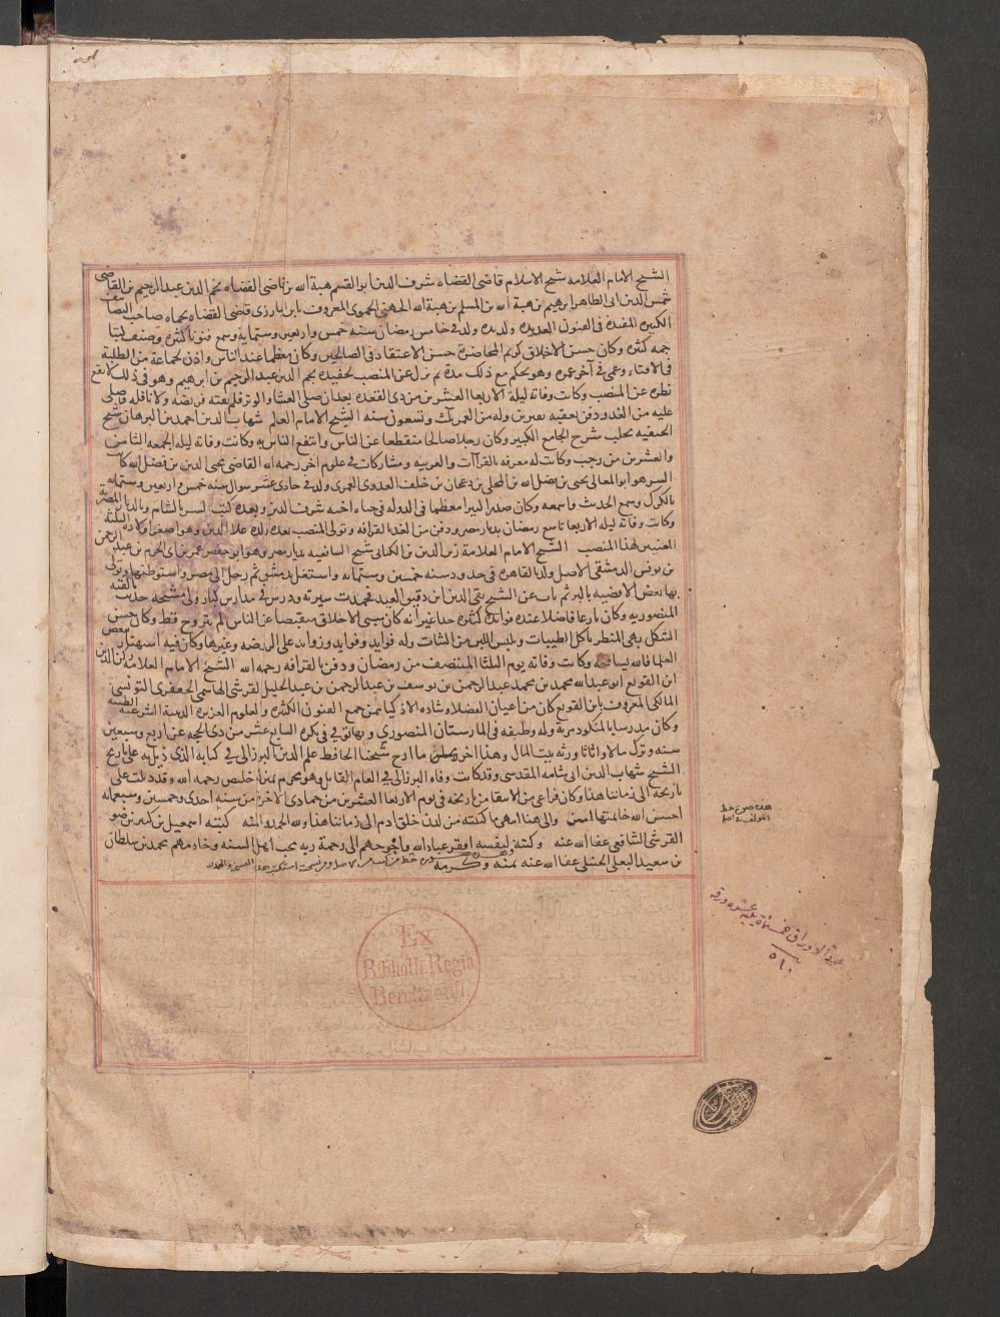 الشيخ الامام العلامه شيخ الاسلام قاضى القضاه شرف الدين ابو القسم هبة الله بن قاضى القضاه نجم الدين عبد الرحيم بن القاضى
شمس الدين ابى الطاهر ابرهيم بن هبة الله بن المسلم بن هبة الله الجهنى الحموى المعروف بابن البارزى قاضى القضاه بحماه صاحب التصانيف
الكثيره المفيده فى الفنون العديده ولد فى خامس رمضان سنه خمس واربعين وستمايه وسمع فنونا كثره وصنف كتبا
جمه كثره وكان حسن الاخلاق كريم المحاضرة حسن الاعتقاد فى الصالحين وكان معظما عند الناس واذن لجماعة من الطلبة
فى الافتاء وعمى فى آخر عمره وهو يحكم مع ذلك مدة ثم نزل عن المنصب لحفيده نجم الدين عبد الرحيم بن ابرهيم وهو فى ذلك لا يقطع
نظره عن المنصب وكانت وفاته ليلة الاربعا العشرين من ذى القعده بعد ان صلى العشا والوتر فلم يفته فريضه ولا نافله وصلى
عليه من الغد ودفن بعقبه نقيرين وله من العمر ثلث وتسعون سنه الشيخ الامام العالم شهاب الدين احمد بن البرهان شيخ
الحنفيه بحلب شرح الجامع الكبير وكان رجلا صالحا منقطعا عن الناس وانتفع الناس به وكانت وفاته ليله الجمعه الثامن
والعشرين من رجب وكانت له معرفه بالقراآت والعربيه ومشاركات فى علوم اخر رحمه الله القاضى محيى الدين بن فضل الله كاتب
السر هو ابو المعالى يحيى بن فضل الله بن المجلى بن دعجان بن خلف العدوى العمرى ولد فى حادى عشر شوال سنه خمس واربعين وستمايه
بالكرك وسمع الحديث واسمعه وكان صدرا كبيرا معظما فى الدوله فى حياه اخيه شرف الدين وبعده كتب السر بالشام وبالديار المصريه
وكانت وفاته ليله الاربعا تاسع رمضان بديار مصر ودفن من الغد بالقرافه وتولى المنصب بعده ولده علا الدين وهو اصغر اولاده الثلثه
المعينين لهذا المنصب الشيخ الامام العلامة زين الدين بن الكتانى شيخ الشافعيه بديار مصر وهو ابو حفص عمر بن ابى الحزم بن عبد الرحمن
بن يونس الدمشقى الاصل ولد بالقاهره فى حدود سنه خمسين وستمايه واشتغل بدمشق ثم رحل الى مصر واستوطنها وتولى
بها بعض الاقضيه بالحكم ثم ناب عن الشيخ تقى الدين ابن دقيق العيد فحمدت سيرته ودرس فى مدارس كبار وولى مشيخه حديث بالقبه
المنصوريه وكان بارعا فاضلا عنده فوائد كثره جدا غير انه كان سيى الاخلاق منقبضا عن الناس لم يتزوج قط وكان حسن
الشكل بهى المنظر ياكل الطيبات ويلبس اللين من الثياب وله فوايد وفوايد وزوايد على الروضه وغيرها وكان فيه استهتار ببعض
العلما فالله يسامحه وكانت وفاته يوم الثلثا المنتصف من رمضان ودفن بالقرافه رحمه الله الشيخ الامام العلامه ركن الدين
ابن القوبع ابو عبد الله محمد بن محمد عبد الرحمن بن يوسف بن عبد الرحمن بن عبد الجليل القرشى الهاشمى الجعفرى التونسى
المالكى المعروف بابن القوبع كان من اعيان الفضلا وساده الاذكيا ممن جمع الفنون الكثره والعلوم الغزيره الدينيه الشرعيه الطبيه
وكان مدرسا بالمنكوتمريه وله وظيفه فى المارستان المنصورى وبها توفى فى بكره السابع عشر من ذى الحجه عن اربع وسبعين
سنه وترك مالا واثاثا ورثه بيت المال وهذا اخر ما ارخ شيخنا الحافظ علم الدين البرزالى فى كتابه الذى ذيل به على تاريخ
الشيخ شهاب الدين ابى شامه المقدسى وقد كانت وفاه البرزالى فى العام القابل وهو محرم بمنزله خليص رحمه الله وقد ذيلت على
تاريخه الى زماننا هذا وكان فراغى من الانتقا من تاريخه فى يوم الاربعا العشرين من جمادى الاخره من سنه احدى وخمسين وسبعمايه
احسن الله خاتمتها امين والى هنا انتهى ما كتبته من لدن خلق ادم الى زماننا هذا ولله الحمد والمنه كتبه اسمعيل بن كثير بن ضو
القرشى الشافعى عفا الله عنه وكتبه لنفسه افقر عباد الله واحوجهم الى رحمة ربه محب اهل السنه وخادمهم محمد بن سلطان
بن سعيد البعلى الحنبلى عفا الله عنه بمنه وكرمه
Ex
Biblioth Regia
Berolinensi
عدة الاوراق خمسماة وعشره ورقه
٥١٠